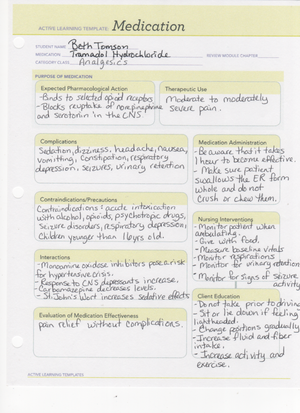 ACTIVE LEARNING TEMPLATE: Medication
STUDENT NAME Beth Tomson
MEDICATION Tramadol Hydrochloride REVIEW MODULE CHAPTER
CATEGORY CLASS Analgesics
PURPOSE OF MEDICATION
Expected Pharmacological Action
- Binds to selected opioid receptors
- Blocks reuptake of norepinephrine
and serotonin in the CNS
Therapeutic Use
Moderate to moderately
severe pain.
Complications
Sedation, dizziness, headache, nausea,
vomiting, constipation, respiratory
depression, seizures, urinary retention
Medication Administration
- Be aware that it takes
1 hour to become effective.
- Make sure patient
swallows the ER form
whole and do not
crush or chew them.
Contraindications/Precautions
Contraindications: acute intoxication
with alcohol, opioids, psychotropic drugs,
Seizure disorders, respiratory depression,
Children younger than 16yers old.
Nursing Interventions
- Monitor patient when
ambulating.
- Give with food.
- Measure baseline vitals
- Monitor respirations
- Monitor for urinary retention
- Monitor for signs of seizure
activity
Interactions
- Monoamine oxidase inhibitors pose a risk
for hypertensive crisis.
- Response to CNS depressants increase.
- Carbamazepine decreases levels.
- St. John's Wort increases sedative effects
Client Education
- Do not take prior to driving
- Sit or lie down if feeling
lightheaded.
- Change positions gradually
- Increase fluid and fiber
intake.
- Increase activity and
exercise.
Evaluation of Medication Effectiveness
pain relief without complications.
ACTIVE LEARNING TEMPLATES